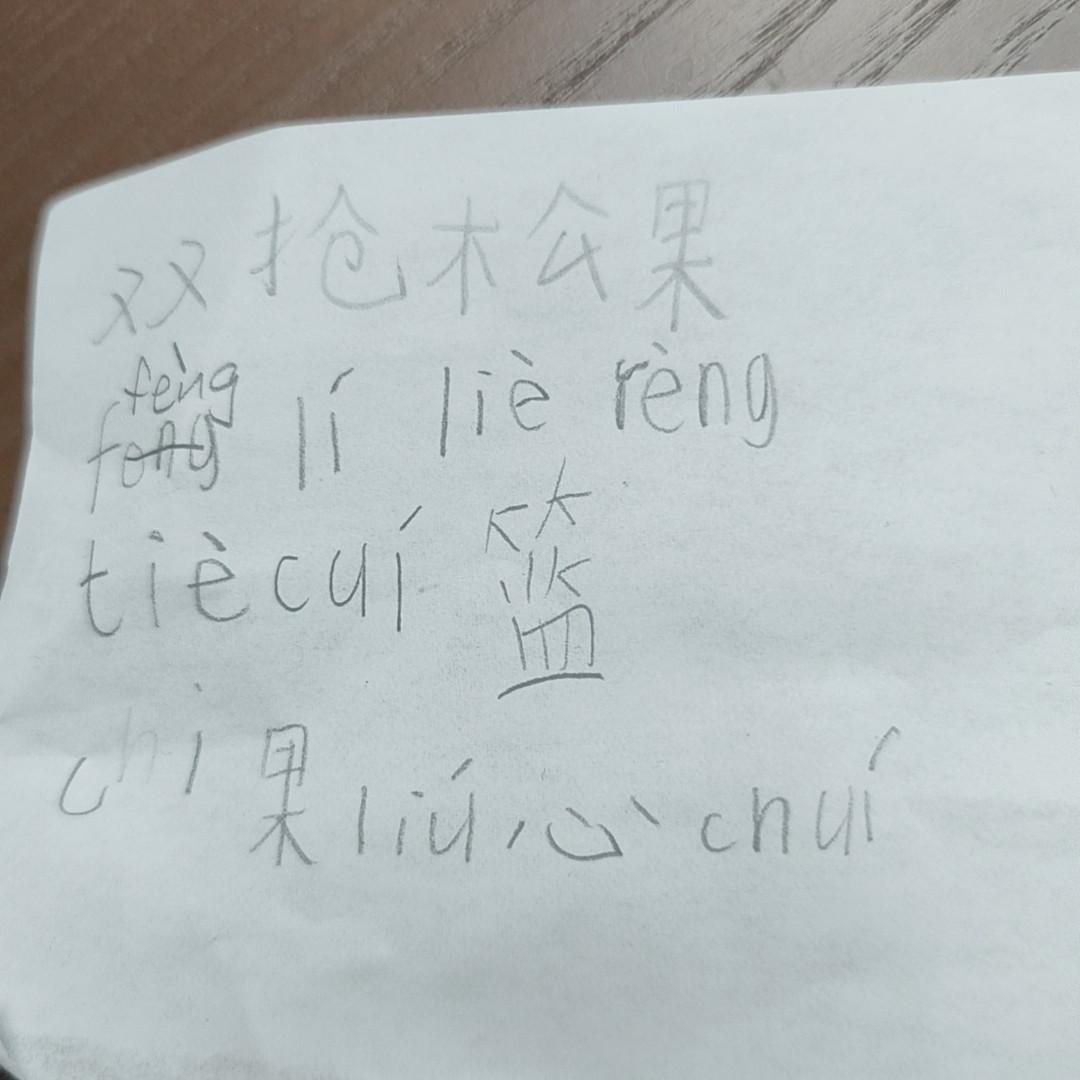 双抢木公果
fèng lí liè rèng
tiè cuí 篮
chi 果 liú 心 chuí